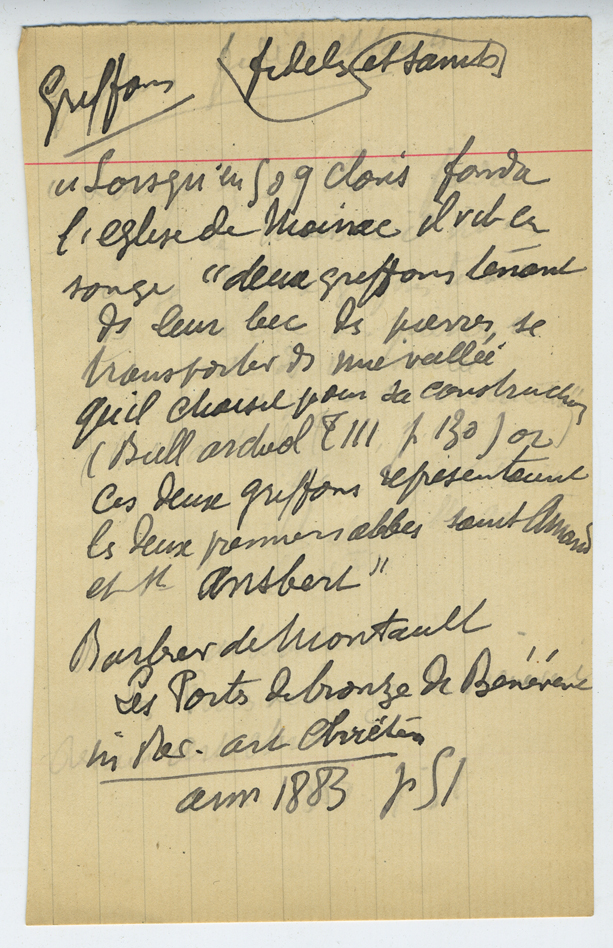 Griffons fidels et saints
"Lorsqu'en 509 Clovis fonda
l'eglise de Moissac il vit en
songe "deux griffons tenant
ds leur bec des pierres, se
transporter ds une vallée
qu'il choisit pour sa construction
(Bull archeol T III p 130) or
ces deux griffons representaient
les deux premiers abbes saint Amand
et St Ansbert"
Barbier de Montault
Les Portes de bronze de Bénévent
in Rev. art Chrétien
ann 1883 p 51